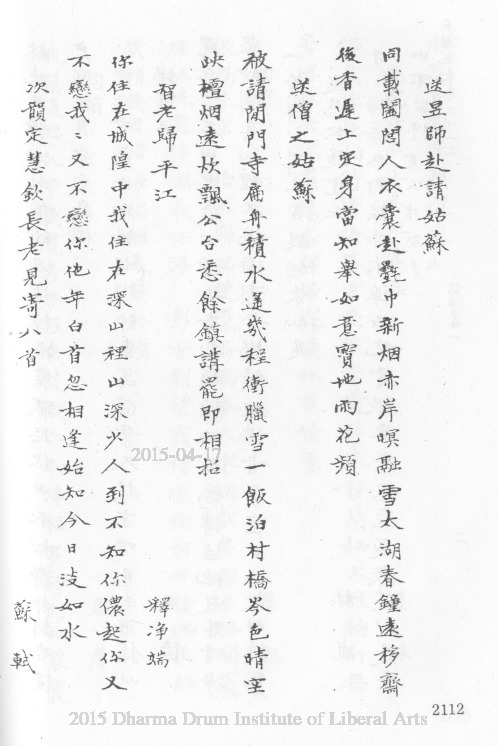 送昱師赴請姑蘇
同載闔閭人衣囊赴氎巾新烟赤岸暝融雪太湖春鐘遠移齋
後香遲上定身當知舉如意寶地雨花頻
送僧之姑蘇
被請閉門寺扁舟積水遥幾程衝臘雪一飯泊村橋岑色晴空
映檀烟遠吹飄公台悉餘鎮講罷即相招
智老歸平江
釋净端
你住在城隍中我住在深山裡山深少人到不知你儂起你又
不戀我〻又不戀你他年白首忽相逢始知今日淡如水
次韻定慧欽長老見寄八首
蘇軾
2112
2015-04-17
2015 Dharma Drum Institute of Liberal Arts